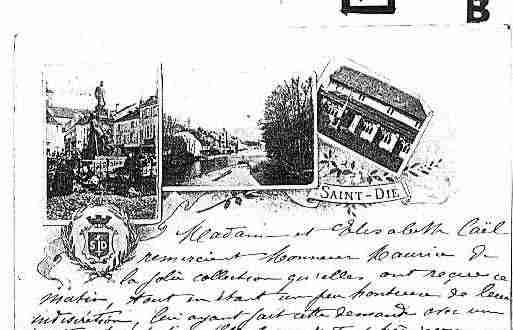 B
SAINT-DIÉ
SD
Madame et Elisabeth Caël
remercient Monsieur Maurice de
la jolie collection qu'elles ont reçue ce
matin, tout en étant un peu honteuses de leur
indiscrétion, lui ayant fait cette demande avec un